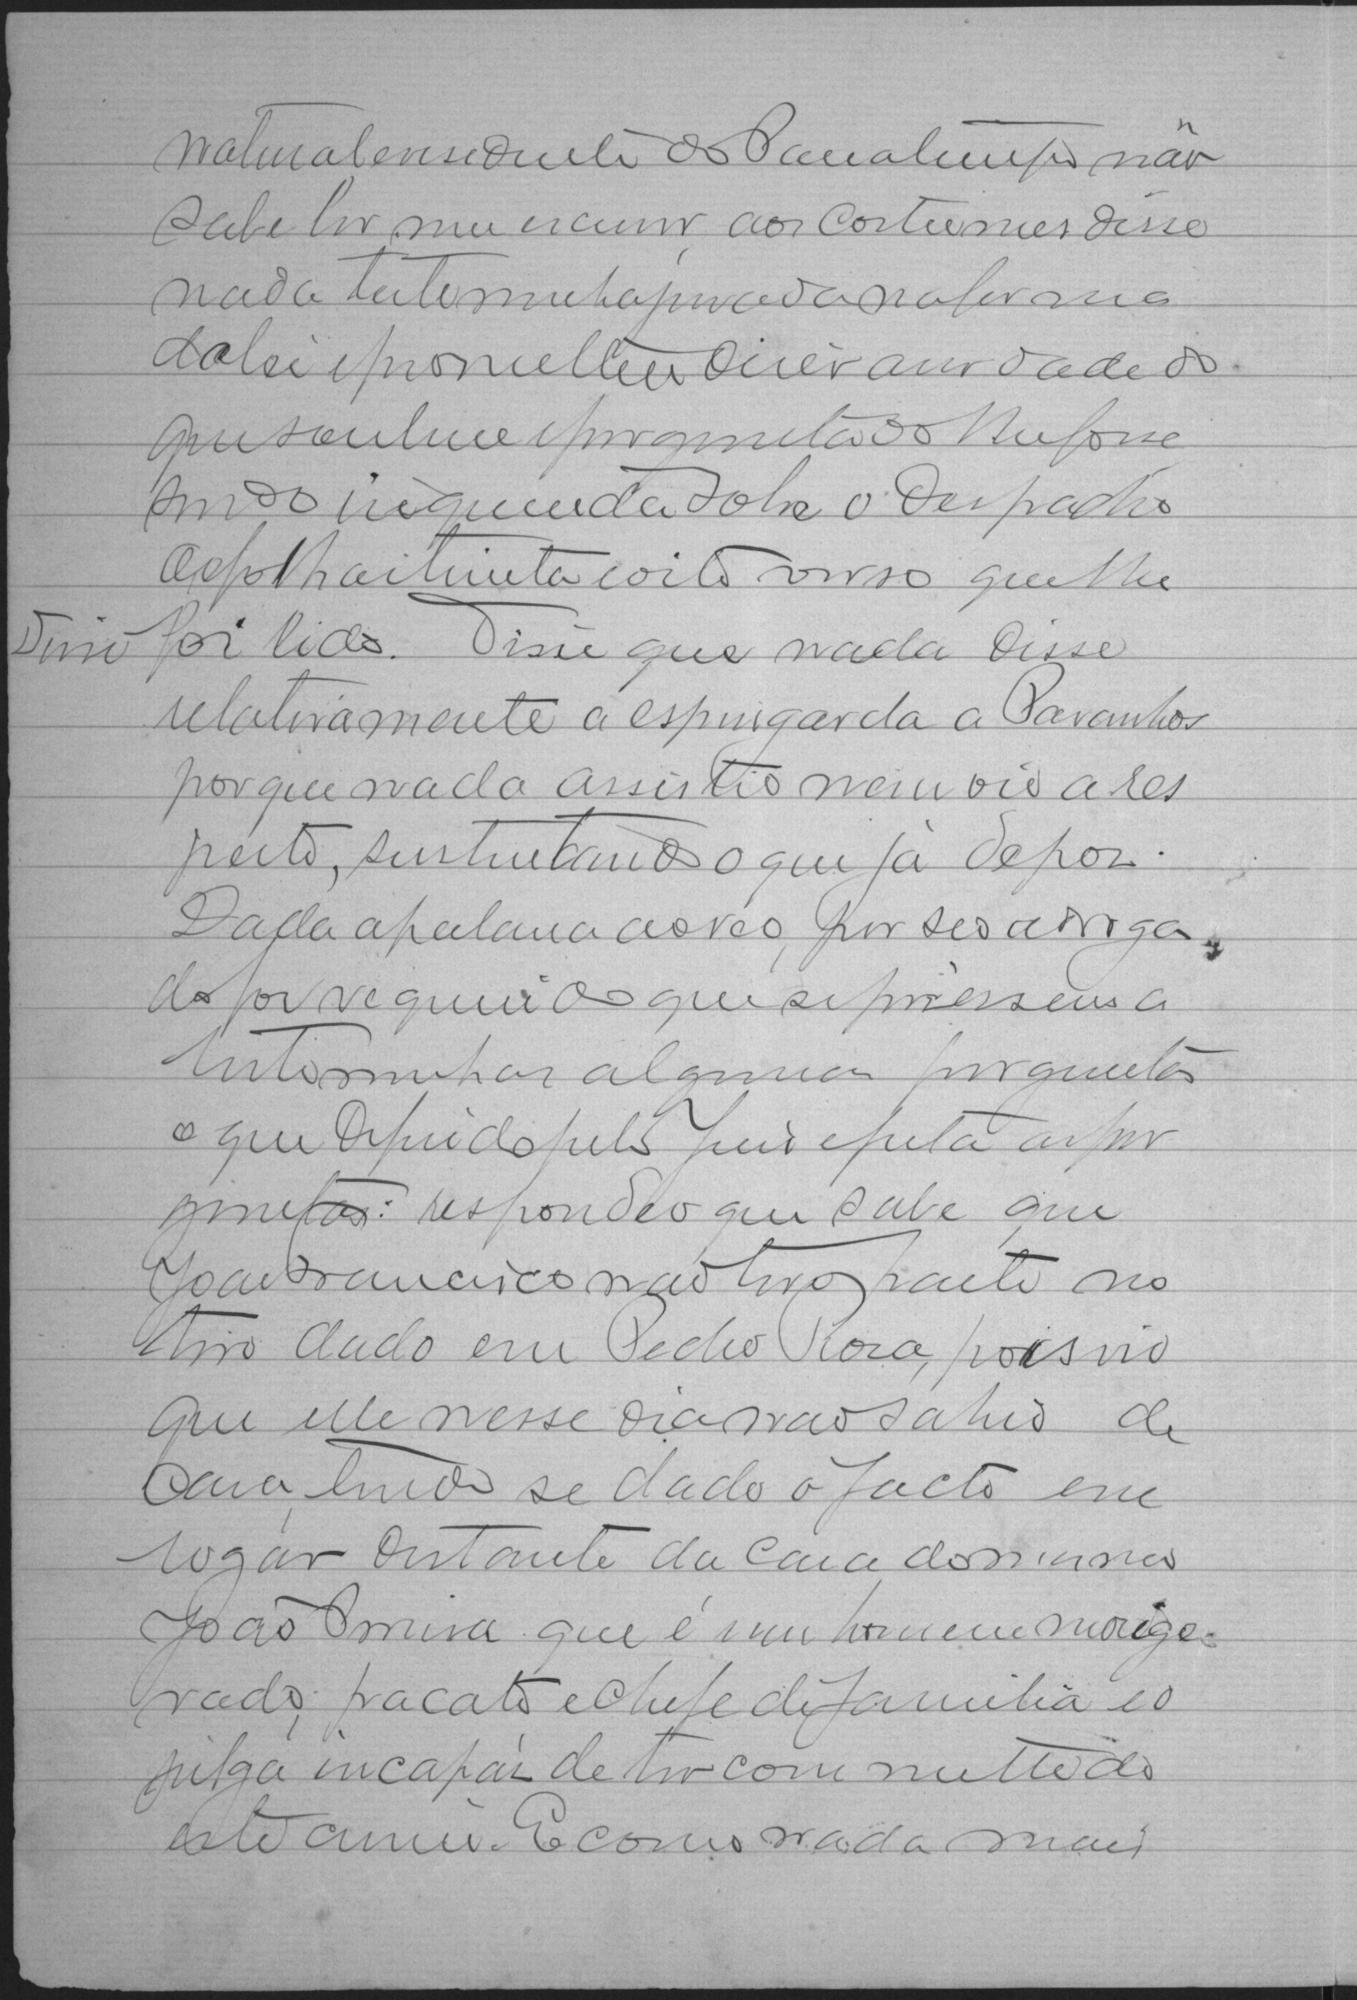 natural e residente do Paraltempo não
sabe ler nem escrever, aos costumes disse
nada testemunha jurada na forma
da lei e prometteu dizer a verdade do
que soubesse e perguntado lhe fosse
sendo inquerida sobre o despacho
a folhas trinta e oito verso que lhe
Disse foi lido. Disse que nada disse
relativamente a espingarda a Paranhos
porque nada assistio nem vio a res
peito, sustentando o que já depoz.
Dada a palavra ao reo, por seo advoga
do foi requerido que se fizessem a
testemunha algumas perguntas
o que deferido pelo Juiz e feita as per
guntas: respondeo que sabe que
João Francisco não teve parte no
tiro dado em Pedro Roza, pois vio
que elle nesse dia não sahio de
casa, tendo se dado o facto em
logar distante da casa do mesmo
João que é um homem morige-
rado, pacato e chefe de familia e o
julga incapáz de ter commettido
este crime. E como nada mais